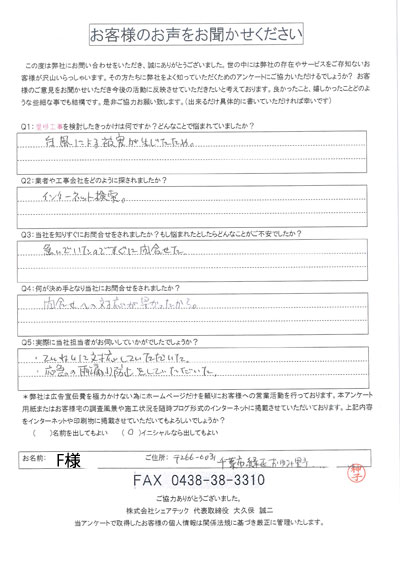 お客様のお声をお聞かせください
この度は弊社にお問い合わせをいただき、誠にありがとうございました。世の中には弊社の存在やサービスをご存知ないお
客様が沢山いらっしゃいます。その方たちに弊社をよく知っていただくためのアンケートにご協力いただけるでしょうか? お客
様のご意見をお聞かせいただき今後の活動に反映させていただきたいと考えております。良かったこと、嬉しかったことどのよ
うな些細な事でも結構です。是非ご協力お願い致します。(出来るだけ具体的に書いていただければ幸いです)
Q1:屋根工事を検討したきっかけは何ですか?どんなことで悩まれていましたか?
台風による被害が生じたため。
Q2:業者や工事会社をどのように探されましたか?
インターネット検索。
Q3:当社を知りすぐにお問合せをされましたか?もし悩まれたとしたらどんなことがご不安でしたか?
急いでいたのですぐに問合せた。
Q4:何が決め手となり当社にお問合せをされましたか?
問合せへの対応が早かったから。
Q5:実際に当社担当者がお伺いしていかがでしたでしょうか?
・ていねいに対応していただいた。
・応急の雨漏り防止をしていただいた。
*弊社は広告宣伝費を極力かけない為にホームページだけを頼りにお客様への営業活動を行っております。本アンケート
用紙またはお客様宅の調査風景や施工状況を随時ブログ形式のインターネットに掲載させていただいております。上記内容
をインターネットや印刷物に掲載させていただいてもよろしいでしょうか?
( )名前を出してもよい (O)イニシャルなら出してもよい
お名前: F様 ご住所: 〒266-0031 千葉市緑区おゆみ野
FAX 0438-38-3310
ご協力ありがとうございました。
株式会社シェアテック 代表取締役 大久保 誠二
当アンケートで取得したお客様の個人情報は関係法規に基づき厳正に管理いたします。